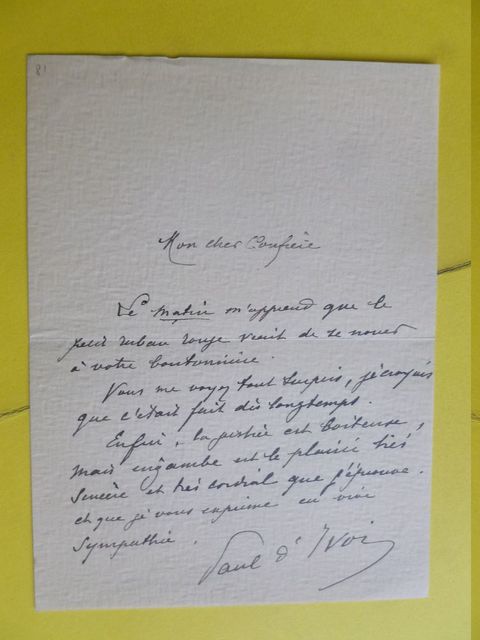 81
Mon cher Confrère
Le Matin m'apprend que le
petit ruban rouge vient de se nouer
à votre boutonnière.
Vous me voyez tout surpris, je croyais
que c'était fait dès longtemps.
Enfin, la justice est boiteuse,
mais ingambe est le plaisir très
sincère et très cordial que j'éprouve.
et que je vous exprime en vive
sympathie.
Paul d'Ivoi